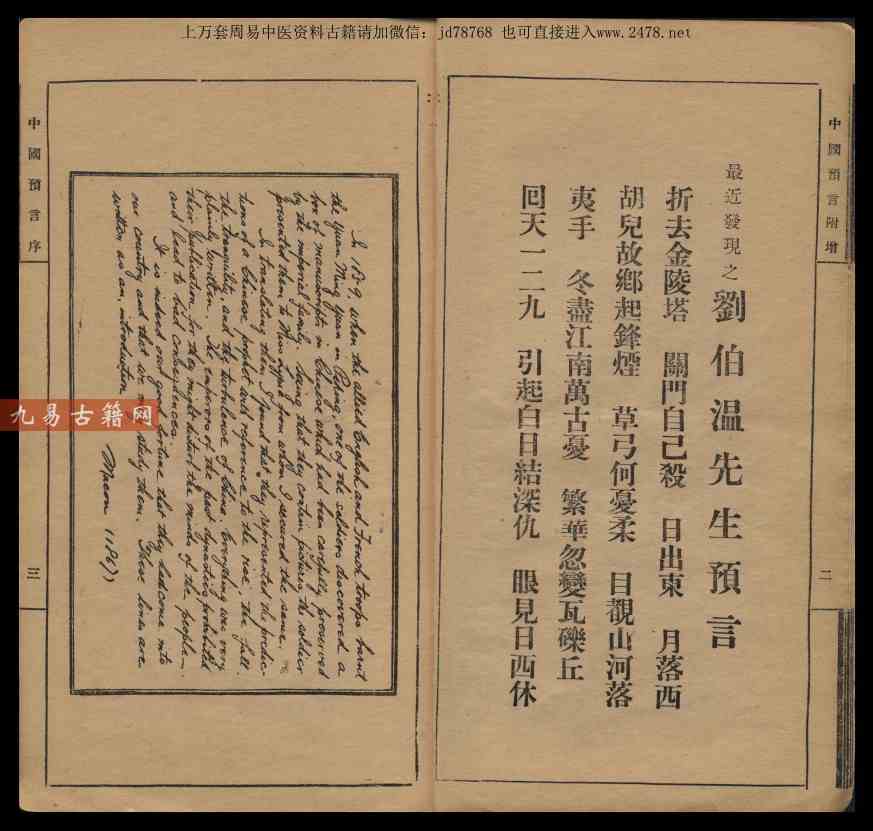 上万套周易中医资料古籍请加微信：jd78768 也可直接进入www.2478.net
中國預言附增
二
最近發現之劉伯温先生預言
折去金陵塔　關門自己殺　日出東　月落西
胡兒故鄉起鋒煙　草弓何憂柔　目覩山河落
夷手　冬盡江南萬古憂　繁華忽變瓦礫丘
回天一二九　引起白日結深仇　眼見日西休
In 1859, when the allied English and French troops burnt
the Yuan Ming Yuan in Peking, one of the soldiers discovered a
box of manuscripts in Chinese which had been carefully preserved
by the imperial family. Seeing that they contain pictures the soldier
presented them to Miss from whom I secured the same.
In translating them I found that they represented the predic-
tions of a Chinese prophet and reference to the rise, the fall,
the tranquility, and the turbulence of China. Everything was very
plainly written. The emperors of the past dynasties prohibited
their publication for they might disturb the minds of the people—
and lead to bad consequences.
It is indeed our good fortune that they had come into
our country and that we may study them. These lines are
written as an introduction
中國預言序
三
九易古籍网